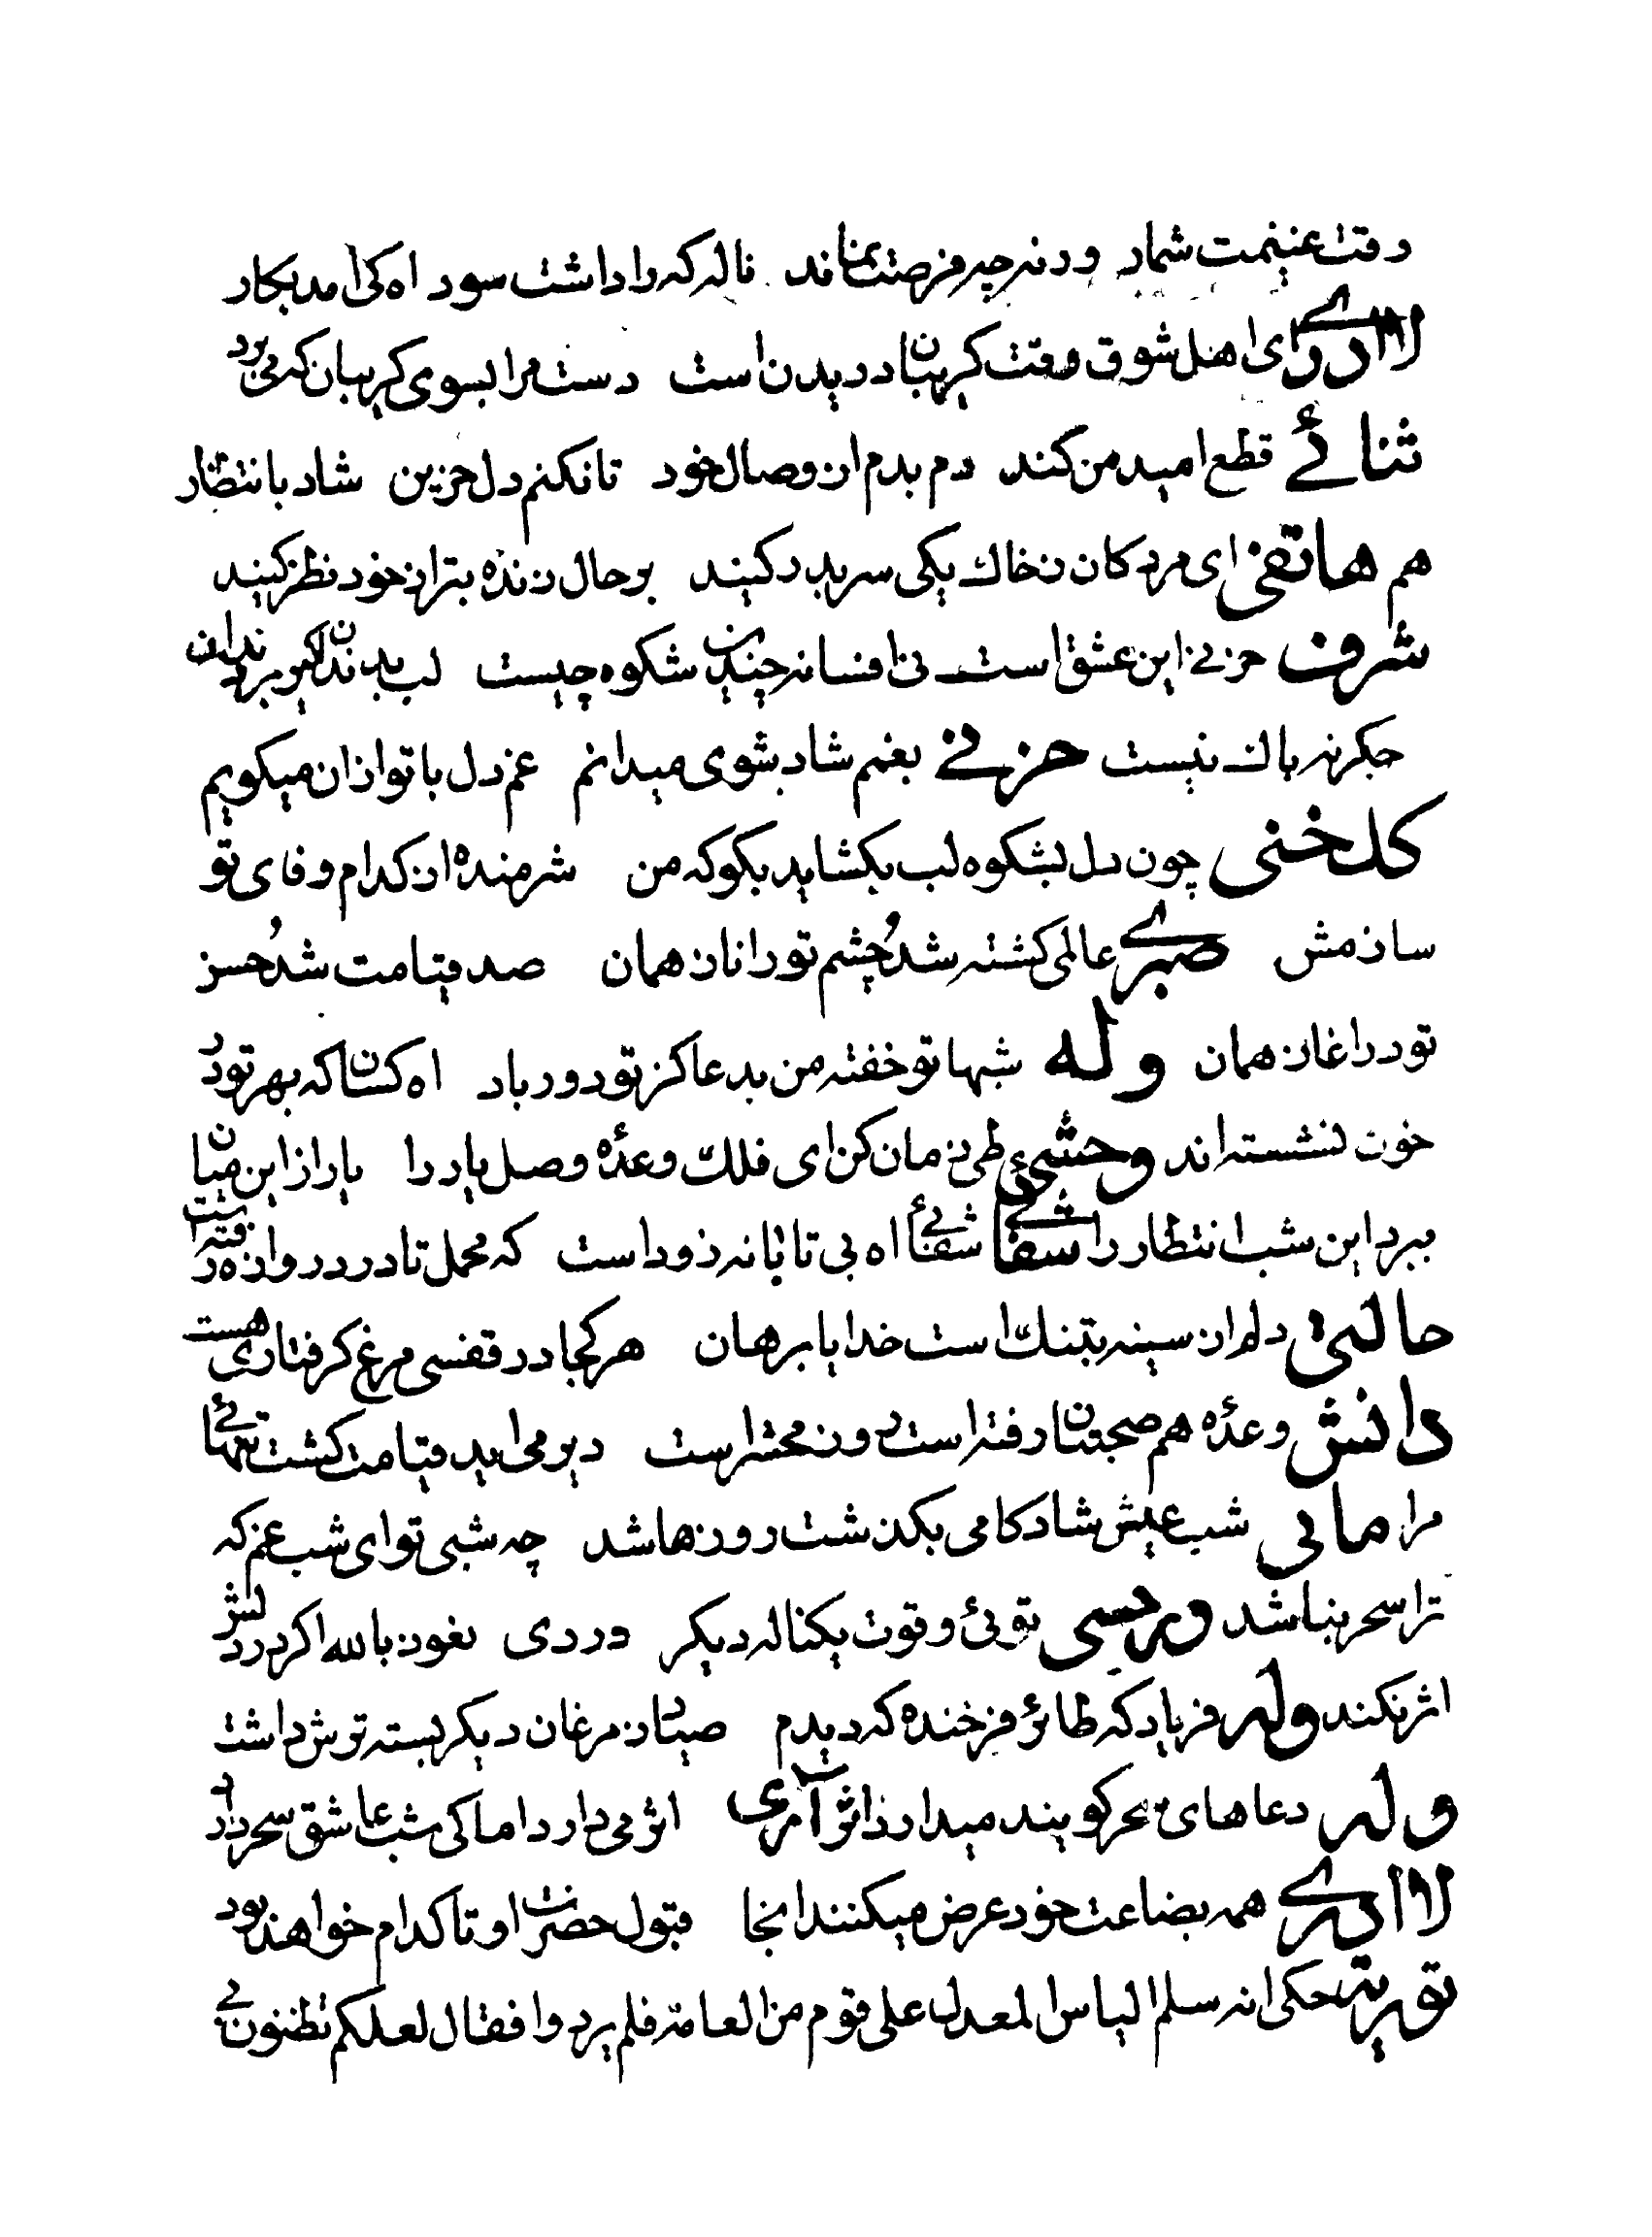 وقت غنیمت شمار ورنه چه فرصت نماند ناله که را داشت سود اه کی امد بکار
لاادری ای اهل شوق وقت کریبان دریدن است دست مرا بسوی کریبان که می برد
ثنائے قطع امید من کند دم بدم از وصال خود تا نکنم دل حزین شاد بانتظار
هم هاتفی ای مردکان ز خاك یکی سر بدر کنید بر حال زنده بتر از خود نظر کنید
شرف حزنی این عشق است نی افسانه چندین شکوه چیست لب بدندان کیر و دندان بر
جکر نه باك نیست حزنے بغم شاد شوی میدانم غم دل با تو ازان میکویم
کلخنی چون دل بشکوه لب بکشاید بکو که من شرمنده از کدام وفای تو
سازمش صبرے عالمی کشته شد و چشم تو را ناز همان صد قیامت شد و حسن
تو در اغاز همان وله شبها تو خفته من بدعا کز تو دور باد اه کسان که بهر تو در
خون نشسته اند وحشی طی زمان کن ای فلك وعدۀ وصل یار را یا راز این میان
ببر این شب انتظار را شفائے شفائے اه بی تابانه زود است که محمل تا در دروازه رفته است
حالتی دلم از سینه بتنك است خدایا برهان هر کجا در قفسی مرغ کرفتاری هست
دانش وعدۀ هم صحبتان رفته است روز محشر است دیر می اید قیامت کشت تنهائے
مرا مانی شب عیش شادکامی بکذشت روزها شد چه شبی تو ای شب غم که
ترا سحر نباشد ورسی توئی و قوت یکناله دیکر دردی نعوذ بالله اکر در دلش
اثر نکند وله فریاد که طائر فرخنده که دیدم صیاد ز مرغان دیکر بسته ترش داشت
وله دعاهای سحر کویند میدارد اثر آری اثر می دارد اما کی شب عاشق سحر دارد
لاادرے همه بضاعت خود عرض میکنند انجا قبول حضرت او تا کدام خواهد بود
توریة حکی انه سلم الیاس المعدل علی قوم من العامة فلم یردوا فقال لعلکم تظنون بے